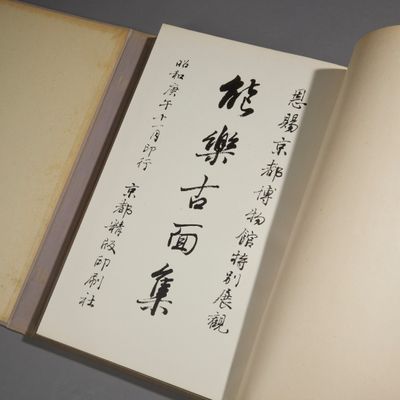 恩賜京都博物館特別展観
能樂古面集
昭和庚午十一月印行　京都精版印刷社